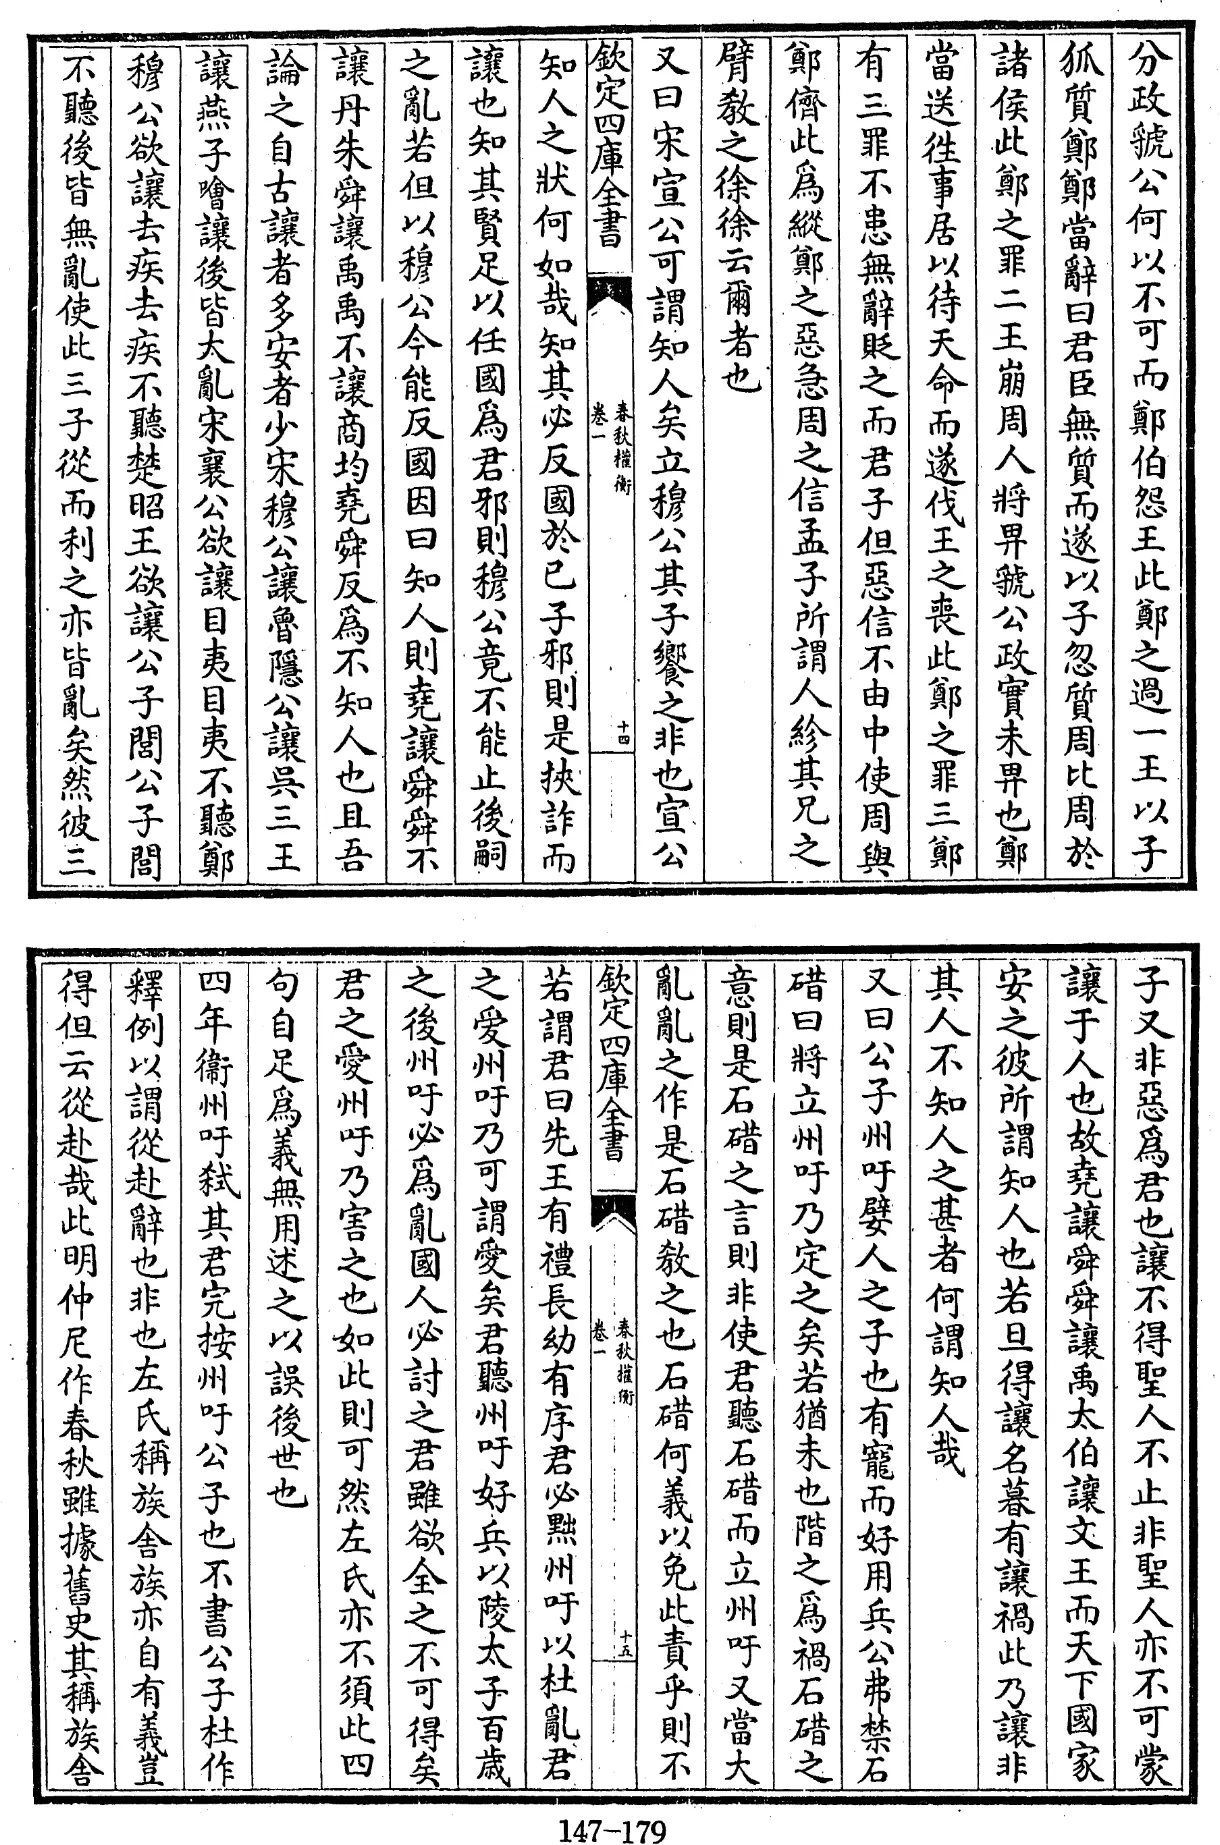 分政虢公何以不可而鄭伯怨王此鄭之過一王以子
狐質鄭鄭當辭曰君臣無質而遂以子忽質周比周於
諸侯此鄭之罪二王崩周人將畀虢公政實未畀也鄭
當送徃事居以待天命而遂伐王之喪此鄭之罪三鄭
有三罪不患無辭貶之而君子但惡信不由中使周與
鄭儕此為縱鄭之惡急周之信孟子所謂人紾其兄之
臂教之徐徐云爾者也
又曰宋宣公可謂知人矣立穆公其子饗之非也宣公
欽定四庫全書
春秋權衡
卷一
十四
知人之狀何如哉知其必反國於已子邪則是挾詐而
讓也知其賢足以任國為君邪則穆公竟不能止後嗣
之亂若但以穆公今能反國因曰知人則堯讓舜舜不
讓丹朱舜讓禹禹不讓商均堯舜反為不知人也且吾
論之自古讓者多安者少宋穆公讓魯隱公讓吳三王
讓燕子噲讓後皆大亂宋襄公欲讓目夷目夷不聽鄭
穆公欲讓去疾去疾不聽楚昭王欲讓公子閭公子閭
不聽後皆無亂使此三子從而利之亦皆亂矣然彼三
子又非惡為君也讓不得聖人不止非聖人亦不可蒙
讓于人也故堯讓舜舜讓禹太伯讓文王而天下國家
安之彼所謂知人也若旦得讓名暮有讓禍此乃讓非
其人不知人之甚者何謂知人哉
又曰公子州吁嬖人之子也有寵而好用兵公弗禁石
碏曰將立州吁乃定之矣若猶未也階之為禍石碏之
意則是石碏之言則非使君聽石碏而立州吁又當大
亂亂之作是石碏教之也石碏何義以免此責乎則不
欽定四庫全書
春秋權衡
卷一
十五
若謂君曰先王有禮長幼有序君必黜州吁以杜亂君
之愛州吁乃可謂愛矣君聽州吁好兵以陵太子百歲
之後州吁必為亂國人必討之君雖欲全之不可得矣
君之愛州吁乃害之也如此則可然左氏亦不須此四
句自足為義無用述之以誤後世也
四年衞州吁弑其君完按州吁公子也不書公子杜作
釋例以謂從赴辭也非也左氏稱族舍族亦自有義豈
得但云從赴哉此明仲尼作春秋雖據舊史其稱族舍
147-179